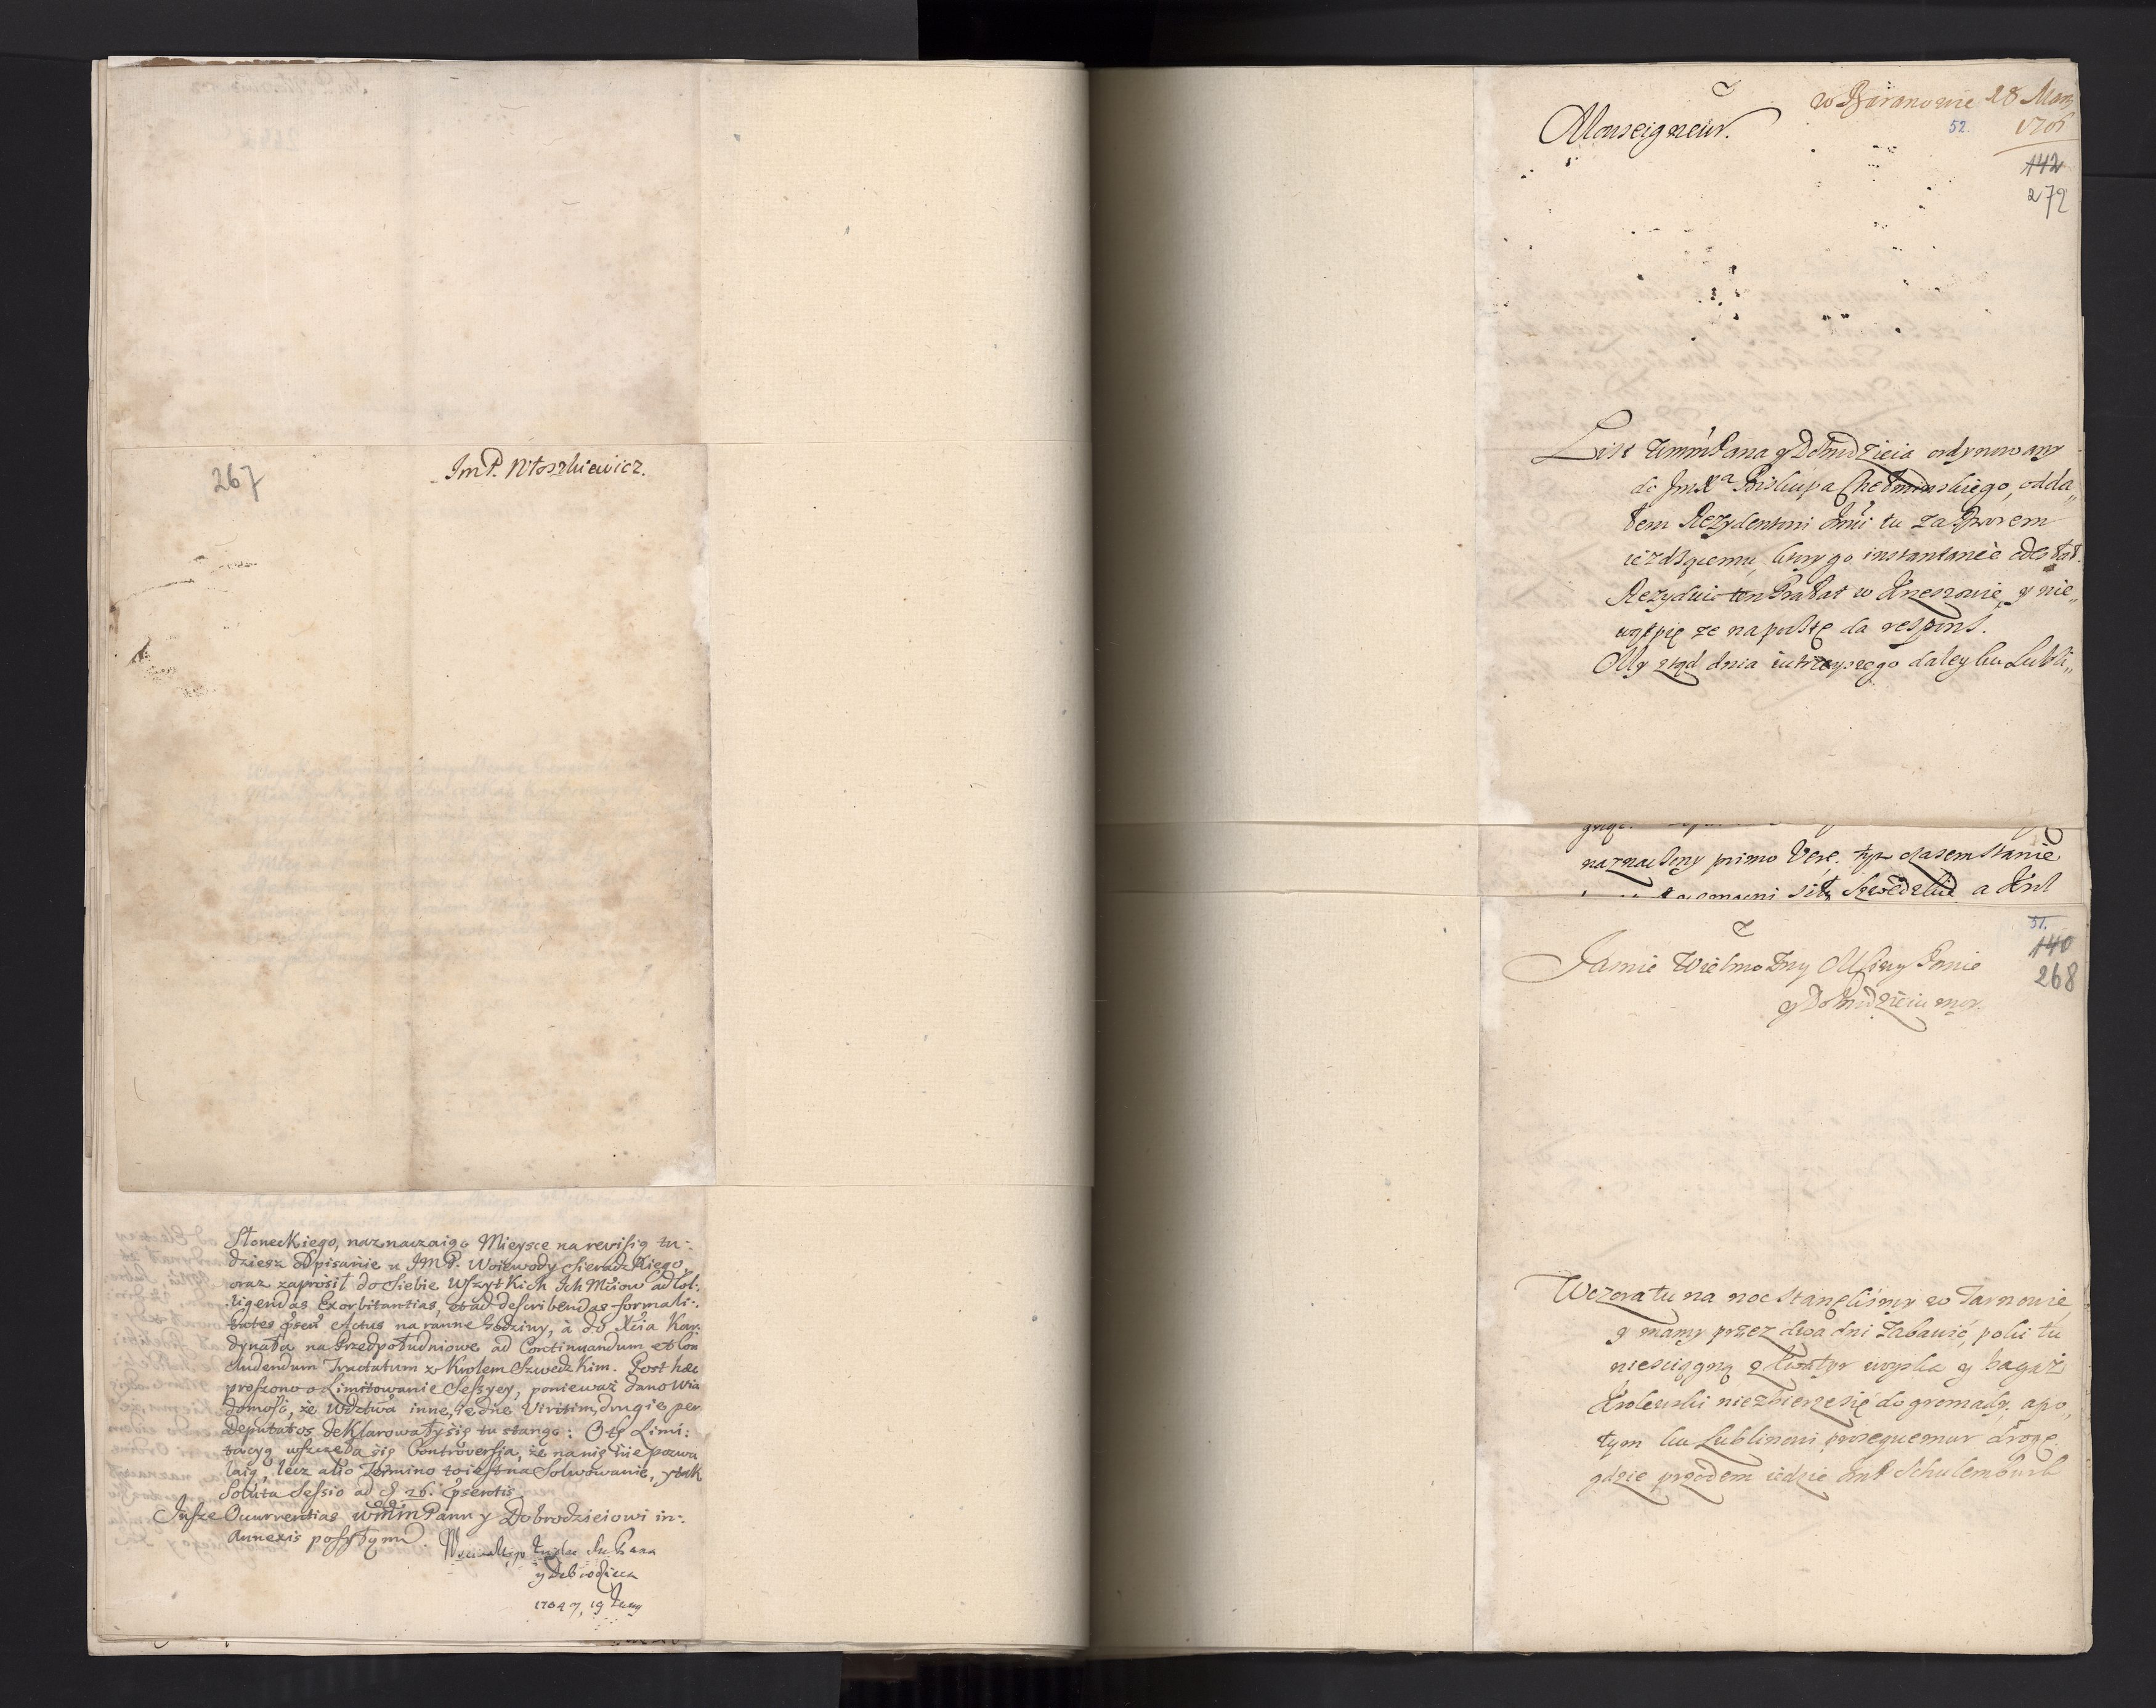 267
Im P. Nitoszkiewicz.
Słoneckiego, naznaczaiąc Mieysce na rewisią tu-
dziesz Spisanie u IMP. Woiewody Sieradzkiego,
oraz zaprosił do Siebie Wszytkich Ich Mciow ad Col-
ligendas Exorbitantias, et ad describendas formali-
tates Actus na ranne godziny, à do Xcia Kar-
dynała na Przedpołudniowe ad Continuandum et Con
cludendum Tractatum z Krolem Szwedzkim. Post hæc
proszono o Limitowanie Sessyey, ponieważ dano Wia
domość, że Wdztwa inne, iedne Viritim, drugie per
Deputatos deklarowały się tu stanąć: O tę Limi:
tacyą wszczęła się Controversia, że na nię nie pozwa
laią, lecz alio Termino na Solwowanie, y tak
Soluta Sessio ad 26. psentis
Insze Occurrentias WmmPanu y Dobrodzieiowi in-
Annexis posyłam.
y Dobrodzieia
1704 19
w Baranowie 28 Mar
1706
52.
Monseigneur.
142
272
List WmmPana y Dobrodzieia ordynowany
do JmXa Biskupa Chełminskiego, odda„
łem Rezydentowi Jmci tu za Dworem
ieżdżącemu, ktory go instantanée odesłał.
Rezyduie ten Prałat w Krzeszowie, y nie„
wątpię ze na posztę da respons.
My ztąd dnia iutrzeyszego daley ku Lubli„
naznaczony primo Vere. tym czasem stanie
siły Szwedzkie a Krol
51.
140
268
Jasnie Wielmożny Mściwy Panie
y Dobrodzieiu moy.
Wczora tu na noc stanęlismy w Tarnowie,
y mamy przez dwa dni zabawić, poki tu
niesciągną z kwatyr woyska y bagaż
Krolewski niezbierze się do gromady, a po„
tym ku Lublinowi prosequemur drogę,
gdzie przodem iedzie ImP Schulemburk